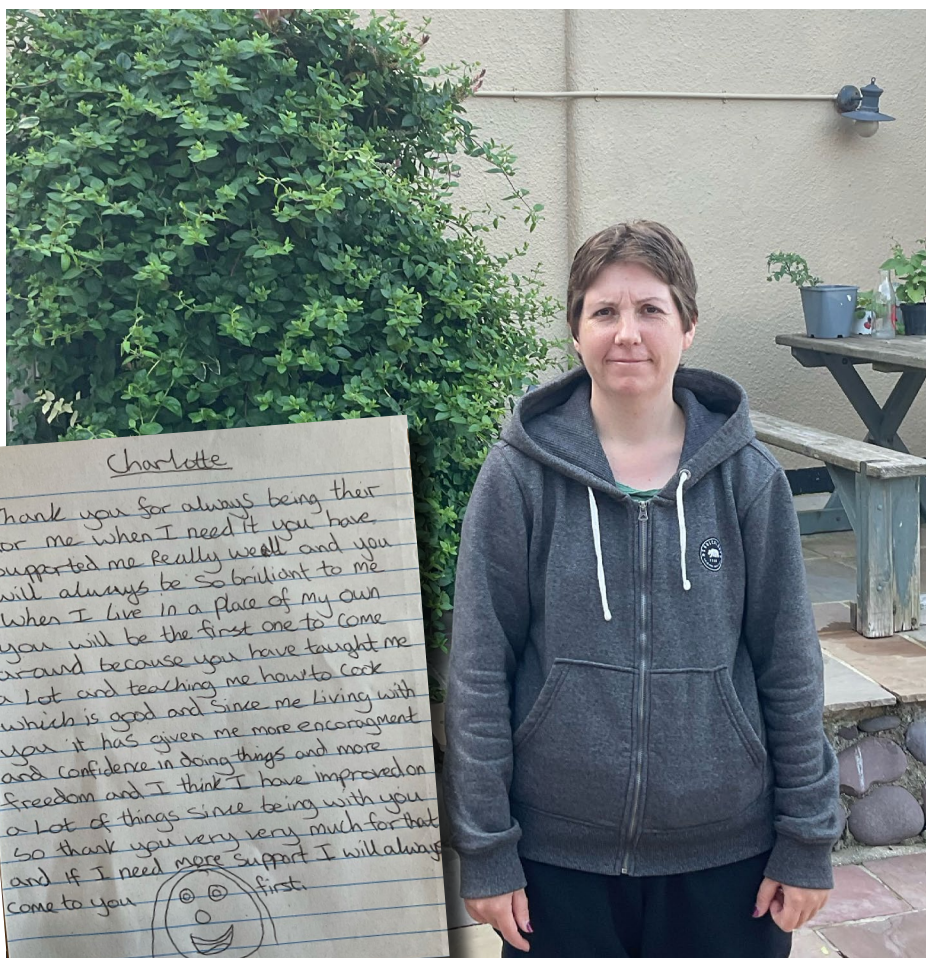 Charlotte
Thank you for always being their
for me when I need it you have
supported me really well and you
will always be so brilliant to me
when I live in a place of my own
you will be the first one to come
around because you have taught me
a lot and teaching me how to cook
which is good and since me living with
you it has given me more encoragment
and confidence in doing things and more
freedom and I think I have improved on
a lot of things since being with you
so thank you very very much for that
and if I need more support I will always
come to you first.